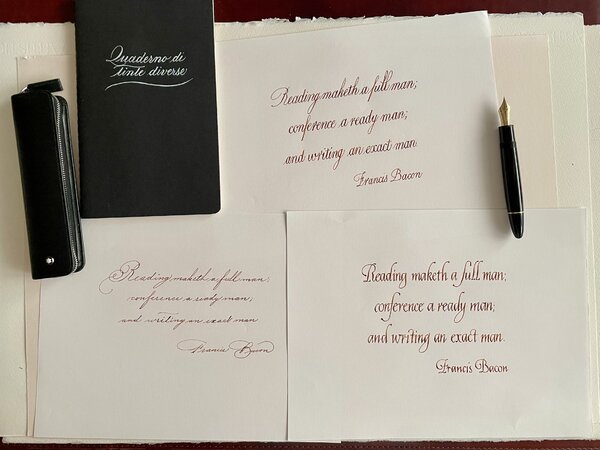 Quaderno di
tinte diverse
Reading maketh a full man;
conference a ready man;
and writing an exact man.
Francis Bacon
Reading maketh a full man;
conference a ready man;
and writing an exact man
Francis Bacon
Reading maketh a full man;
conference a ready man;
and writing an exact man.
Francis Bacon